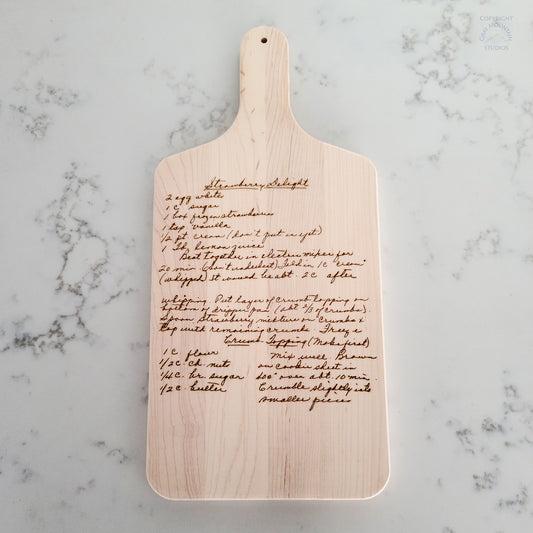 COPYRIGHT
GRAY MOUNTAIN
STUDIOS
Strawberry Delight
2 egg white
1 c sugar
1 box frozen strawberries
1 tsp vanilla
1/2 pt cream (don't put in yet)
1 Tbl lemon juice
Beat together in electric mixer for
20 min (don't underbeat) Fold in 1c "cream"
(whipped) It would be abt. 2c after
whipping. Put layer of crumb topping on
bottom of dripper pan (abt 2/3 of crumbs).
Spoon Strawberry mixture on crumbs &
top with remaining crumbs Freeze
Crumb Topping (Make first)
1 c flour
1/2 c ch. nuts
1/4 c. br. sugar
1/2 c. butter
Mix well Brown
on cookie sheet in
400° oven abt. 10 min.
Crumble slightly into
smaller pieces